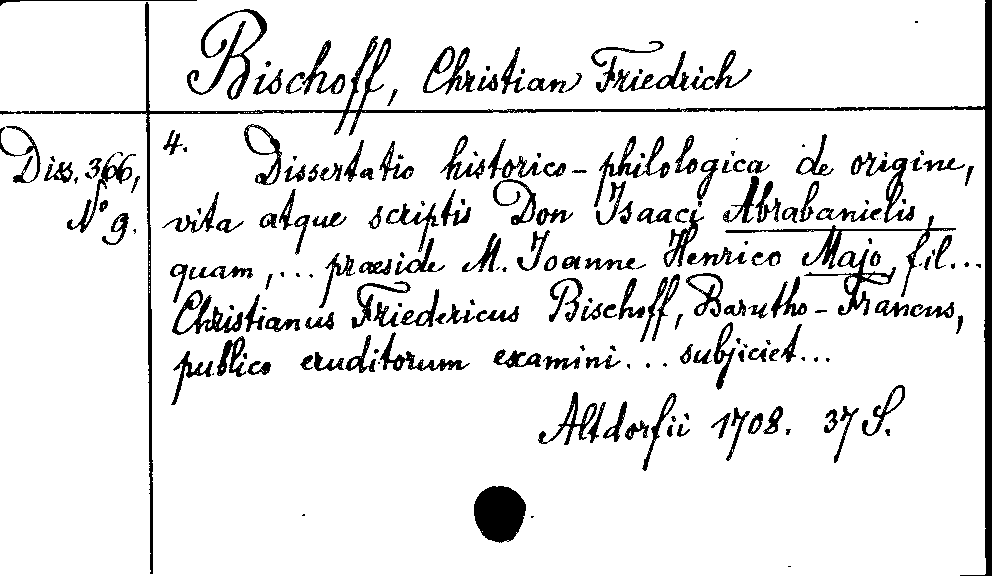 Bischoff, Christian Friedrich
Diss. 366,
No 9.
4. Dissertatio historico-philologica de origine,
vita atque scriptis Don Isaaci Abrabanielis,
quam,... praeside M. Ioanne Henrico Majo, fil...
Christianus Friedericus Bischoff, Barutho-Francus,
publico eruditorum examini... subjiciet...
Altdorfii 1708. 37 S.